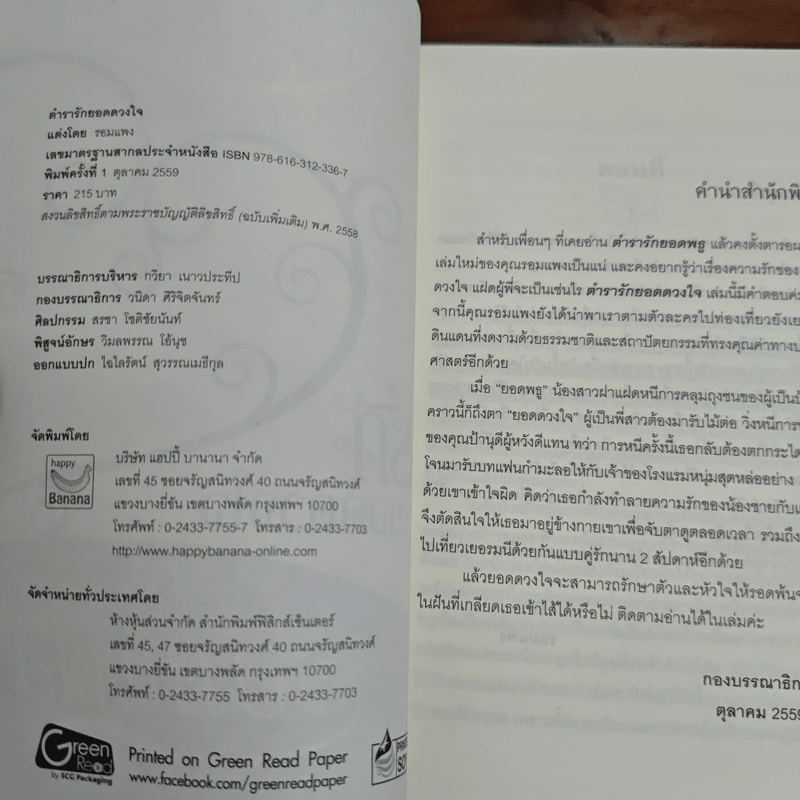 ตำรารักยอดดวงใจ
แต่งโดย รอมแพง
เลขมาตรฐานสากลประจำหนังสือ ISBN 978-616-312-336-7
พิมพ์ครั้งที่ 1 ตุลาคม 2559
ราคา 215 บาท
สงวนลิขสิทธิ์ตามพระราชบัญญัติลิขสิทธิ์ (ฉบับเพิ่มเติม) พ.ศ. 2558
บรรณาธิการบริหาร กวิยา เนาวประทีป
กองบรรณาธิการ วนิดา ศิริจิตจันทร์
ศิลปกรรม สรชา โชติชัยนันท์
พิสูจน์อักษร วิมลพรรณ โอ้นุช
ออกแบบปก ไอไลรัตน์ สุวรรณเมธีกุล
จัดพิมพ์โดย
happy
Banana
บริษัท แฮปปี้ บานานา จำกัด
เลขที่ 45 ซอยจรัญสนิทวงศ์ 40 ถนนจรัญสนิทวงศ์
แขวงบางยี่ขัน เขตบางพลัด กรุงเทพฯ 10700
โทรศัพท์ : 0-2433-7755-7 โทรสาร : 0-2433-7703
http://www.happybanana-online.com
จัดจำหน่ายทั่วประเทศโดย
ห้างหุ้นส่วนจำกัด สำนักพิมพ์ฟิสิกส์เซ็นเตอร์
เลขที่ 45, 47 ซอยจรัญสนิทวงศ์ 40 ถนนจรัญสนิทวงศ์
แขวงบางยี่ขัน เขตบางพลัด กรุงเทพฯ 10700
โทรศัพท์ : 0-2433-7755 โทรสาร : 0-2433-7703
Green
Read
by SCC Packaging
Printed on Green Read Paper
www.facebook.com/greenreadpaper
คำนำสำนักพิ
สำหรับเพื่อนๆ ที่เคยอ่าน ตำรารักยอดพธู แล้วคงตั้งตารอผ
เล่มใหม่ของคุณรอมแพงเป็นแน่ และคงอยากรู้ว่าเรื่องความรักของ
ดวงใจ แฝดผู้พี่จะเป็นเช่นไร ตำรารักยอดดวงใจ เล่มนี้มีคำตอบค่
จากนี้คุณรอมแพงยังได้นำพาเราตามตัวละครไปท่องเที่ยวยังเย
ดินแดนที่งดงามด้วยธรรมชาติและสถาปัตยกรรมที่ทรงคุณค่าทางป
ศาสตร์อีกด้วย
เมื่อ “ยอดพธู” น้องสาวฝาแฝดหนีการคลุมถุงชนของผู้เป็นป้
คราวนี้ก็ถึงตา “ยอดดวงใจ” ผู้เป็นพี่สาวต้องมารับไม้ต่อ วิ่งหนีการ
ของคุณป้านุดีผู้หวังดีแทน ทว่า การหนีครั้งนี้เธอกลับต้องตกกระได
โจนมารับบทแฟนกำมะลอให้กับเจ้าของโรงแรมหนุ่มสุดหล่ออย่าง
ด้วยเขาเข้าใจผิด คิดว่าเธอกำลังทำลายความรักของน้องชายกับแ
จึงตัดสินใจให้เธอมาอยู่ข้างกายเขาเพื่อจับตาดูตลอดเวลา รวมถึง
ไปเที่ยวเยอรมนีด้วยกันแบบคู่รักนาน 2 สัปดาห์อีกด้วย
แล้วยอดดวงใจจะสามารถรักษาตัวและหัวใจให้รอดพ้นจ
ในฝันที่เกลียดเธอเข้าไส้ได้หรือไม่ ติดตามอ่านได้ในเล่มค่ะ
กองบรรณาธิก
ตุลาคม 2559